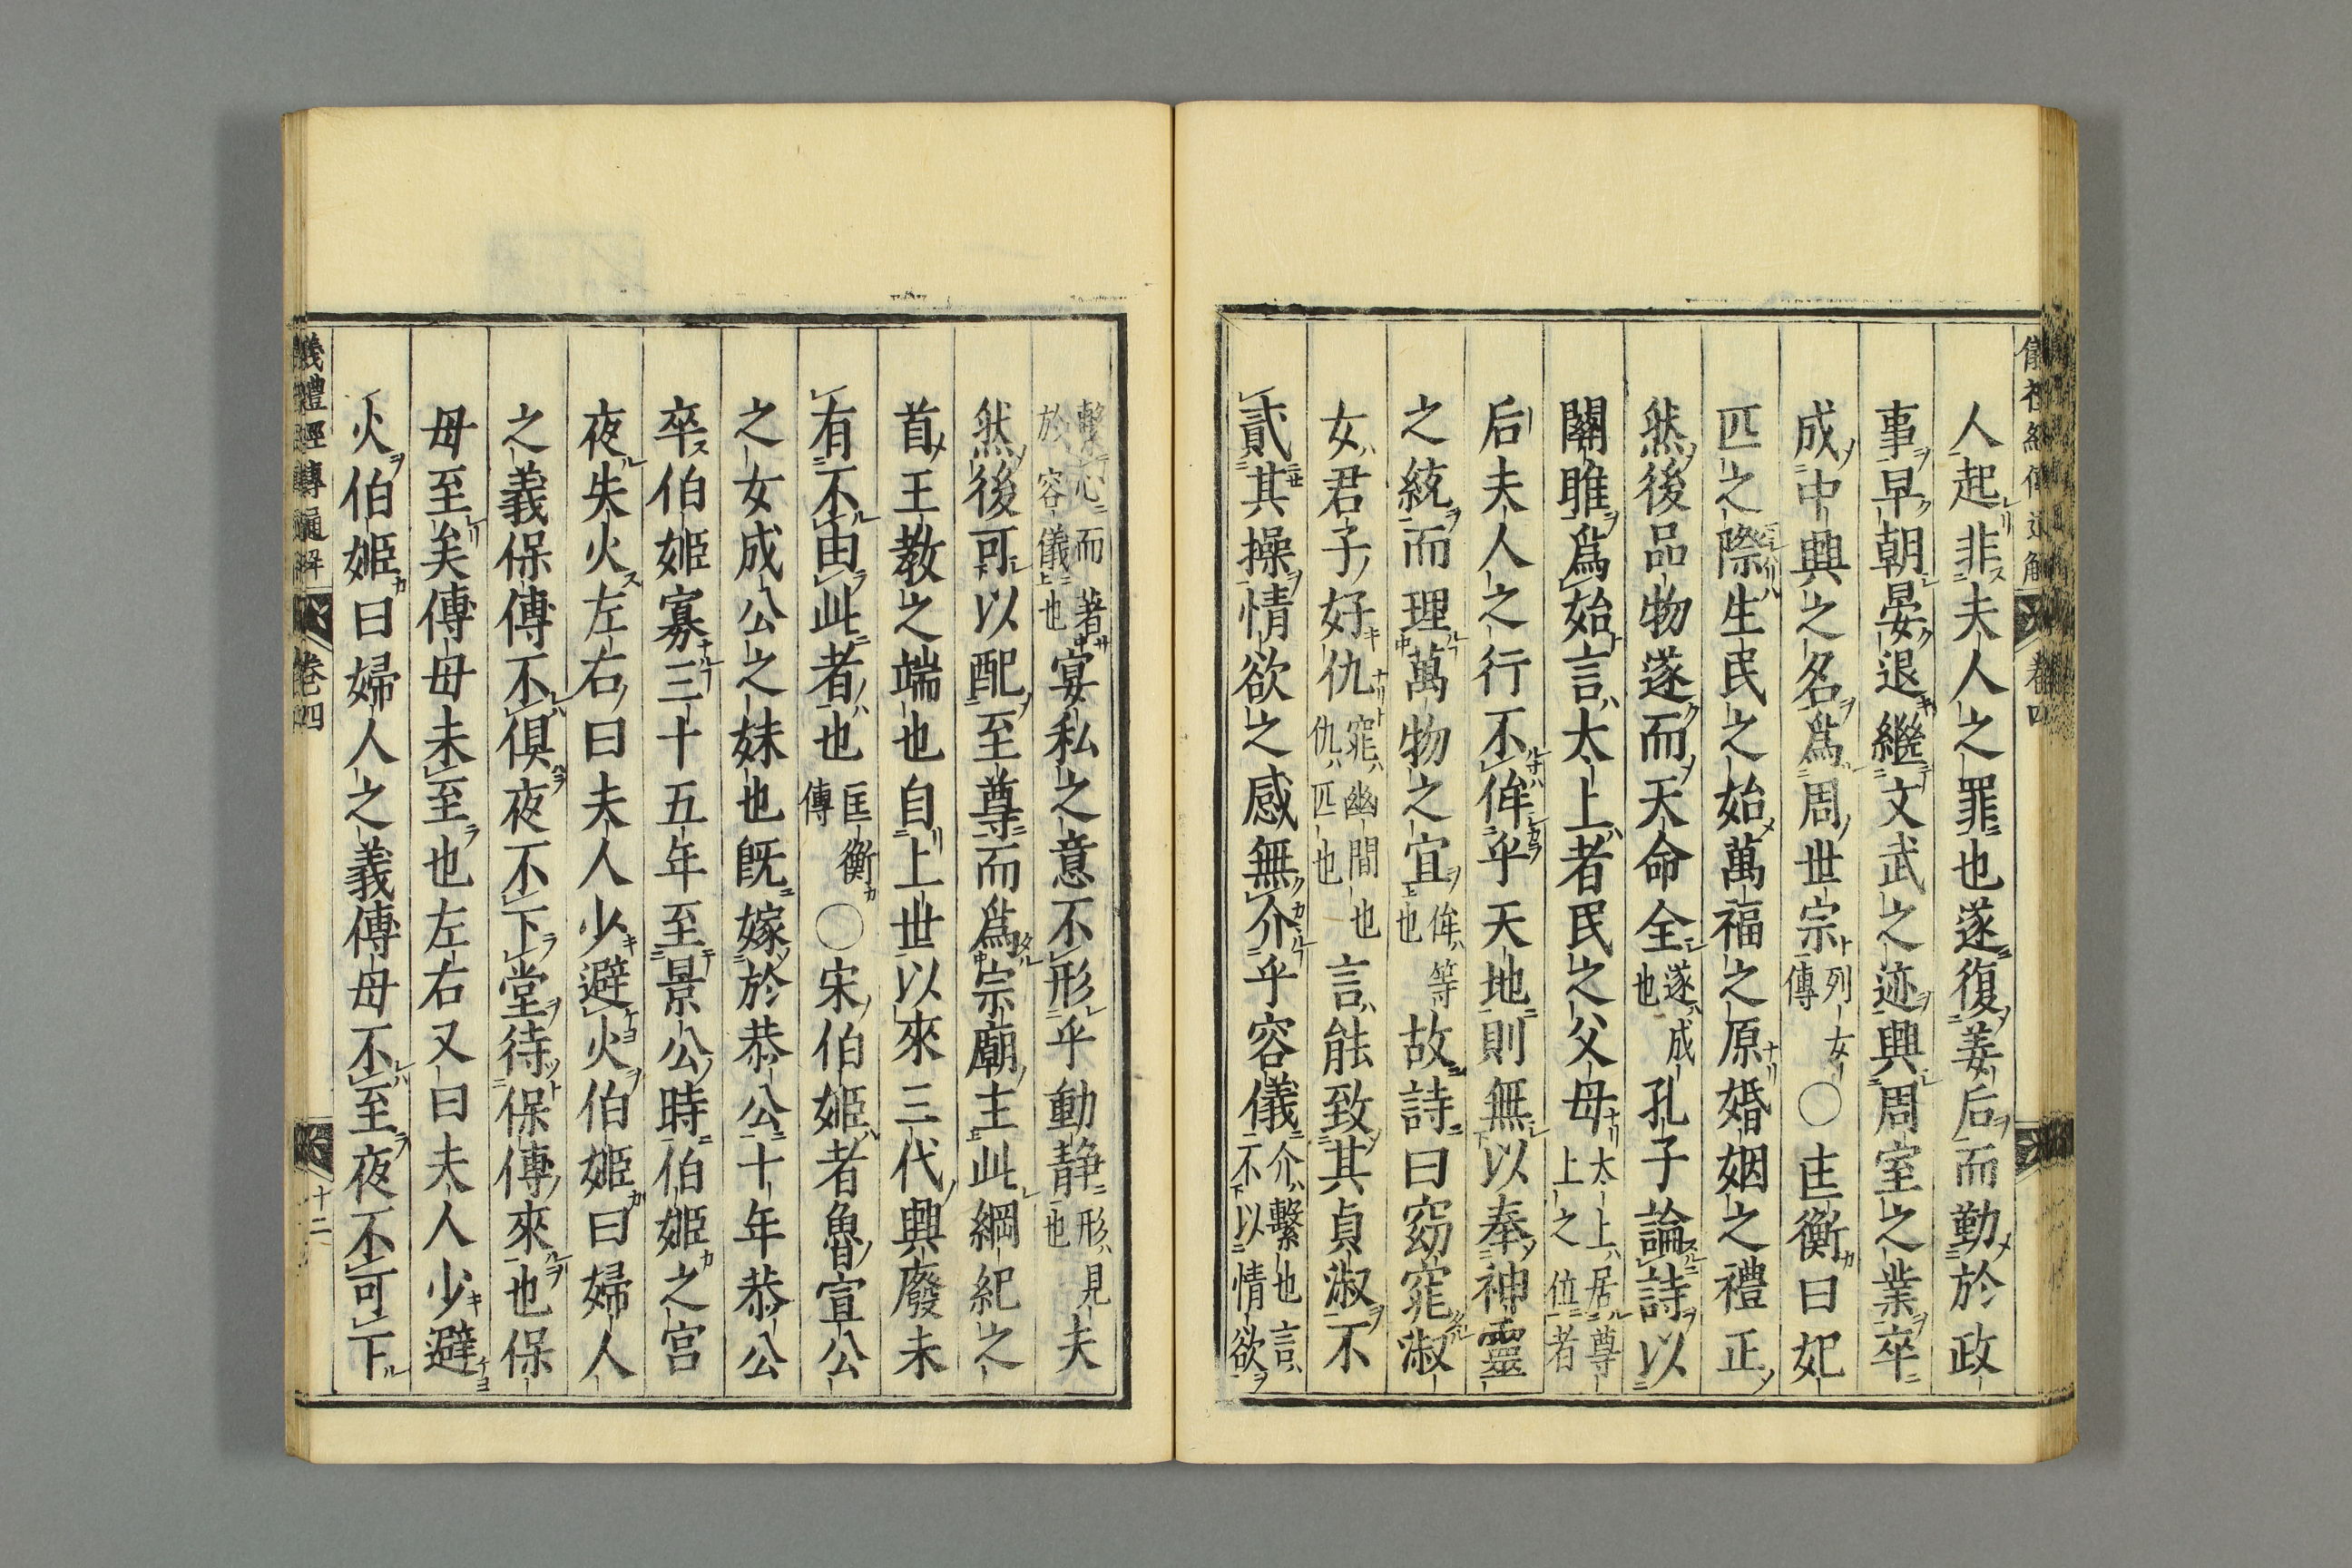 人起非夫人之罪也遂復姜后而勤於政
事早朝晏退繼文武之迹興周室之業卒
成中興之名爲周世宗列女傳○匡衡曰妃
匹之際生民之始萬福之原婚姻之禮正
然後品物遂而天命全遂成也孔子論詩以
關雎爲始言太上者民之父母太上居尊上之位者
后夫人之行不侔乎天地則無以奉神靈
之統而理萬物之宜侔等也故詩曰窈窕淑
女君子好仇窕幽間也仇匹也言能致其貞淑不
貳其操情欲之感無介乎容儀介繫也言不以情欲
繫心而著於容儀也宴私之意不形乎動静形見也夫
然後可以配至尊而爲宗廟主此綱紀之
首王教之端也自上世以來三代興廢未
有不由此者也匡衡傳○宋伯姬者魯宣公
之女成公之妹也既嫁於恭公十年恭公
卒伯姬寡三十五年至景公時伯姬之宮
夜失火左右曰夫人少避火伯姬曰婦人
之義保傅不俱夜不下堂待保傅來也保
母至矣傅母未至也左右又曰夫人少避
火伯姬曰婦人之義傅母不至夜不可下
儀禮經傳通解 卷四 十二